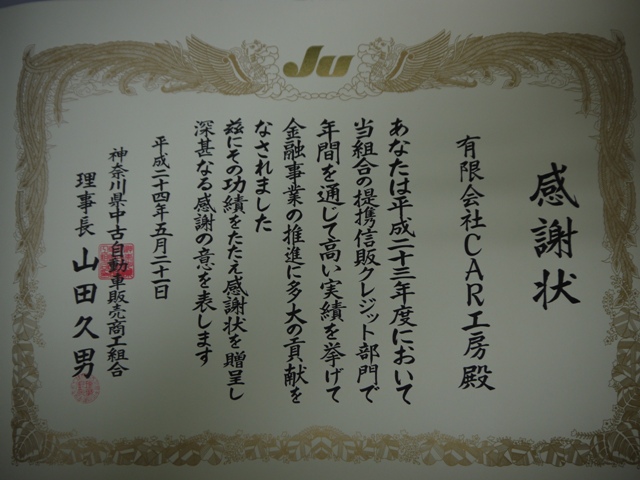 Ju
感謝状
有限会社CAR工房殿
あなたは平成二十三年度において
当組合の提携信販クレジット部門で
年間を通じて高い実績を挙げて
金融事業の推進に多大の貢献を
なされました
茲にその功績をたたえ感謝状を贈呈し
深甚なる感謝の意を表します
平成二十四年五月二十一日
神奈川県中古自動車販売商工組合
理事長 山田久男